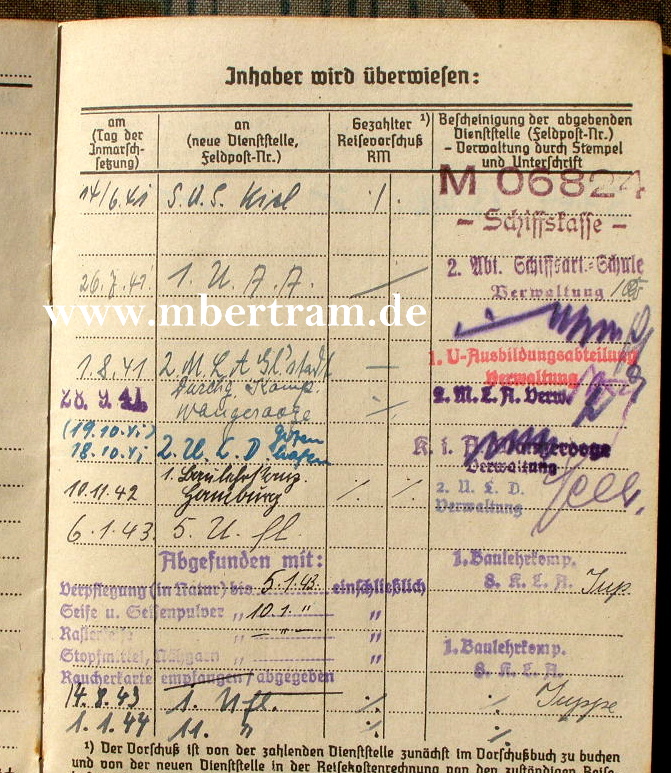 Inhaber wird überwiesen:
am
(Tag der
Inmarsch-
setzung)
an
(neue Dienststelle,
Feldpost-Nr.)
Gezahlter ¹)
Reisevorschuß
RM
Bescheinigung der abgebenden
Dienststelle (Feldpost-Nr.)
- Verwaltung durch Stempel
und Unterschrift
14/6.41 S.A.S. Kiel
M 06824
- Schiffskasse -
26.7.41 1. U.A.A.
2. Abt. Schiffsart.-Schule
Verwaltung
www.mbertram.de
1.8.41 2. M.L.A Gl'stadt
1. U-Ausbildungsabteilung
Verwaltung
28.9.41 Durchg. Komp.
Wangerooge
2. M.L.A. Verw.
(19.10.41)
18.10.41 2. U.L.D
Verwaltung
10.11.42 1. Baulehrkomp.
Hamburg
2. U.L.D.
Verwaltung
6.1.43 5. U. fl.
Abgefunden mit:
1. Baulehrkomp.
8. K.L.A.
Verpflegung (in Natur) bis 5.1.43. einschließlich
Seife u. Seifenpulver „ 10.1 " "
Rasierseife " "
Stopfmittel, Nähgarn „ "
1. Baulehrkomp.
8. K.L.A.
Raucherkarte empfangen / abgegeben
14.8.43 1. Ufl. Juppe
1.1.44 11. "
¹) Der Vorschuß ist von der zahlenden Dienststelle zunächst im Vorschußbuch zu buchen
und von der neuen Dienststelle in der Reisekostenrechnung von den zuständigen Reise-